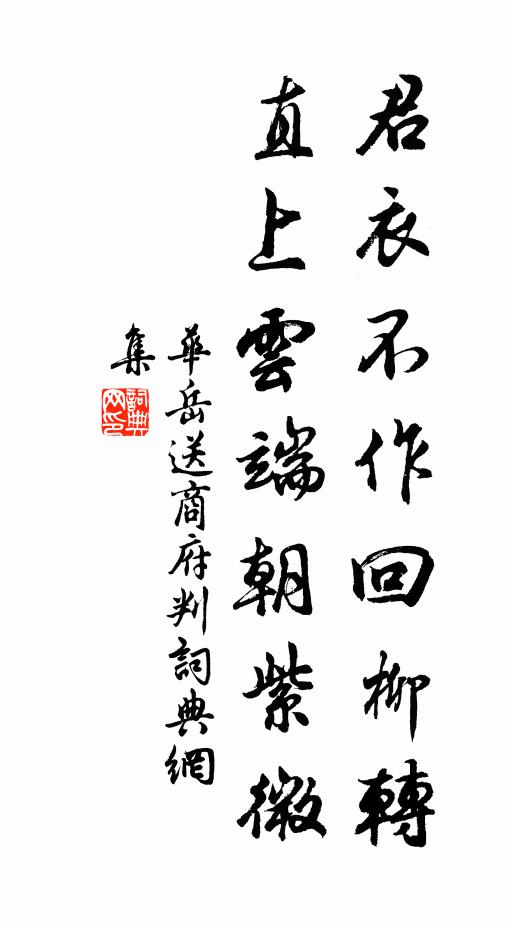 君衣不作回柳轉
直上雲端朝紫微
華岳送商府判詞典網
集
詞典
网印